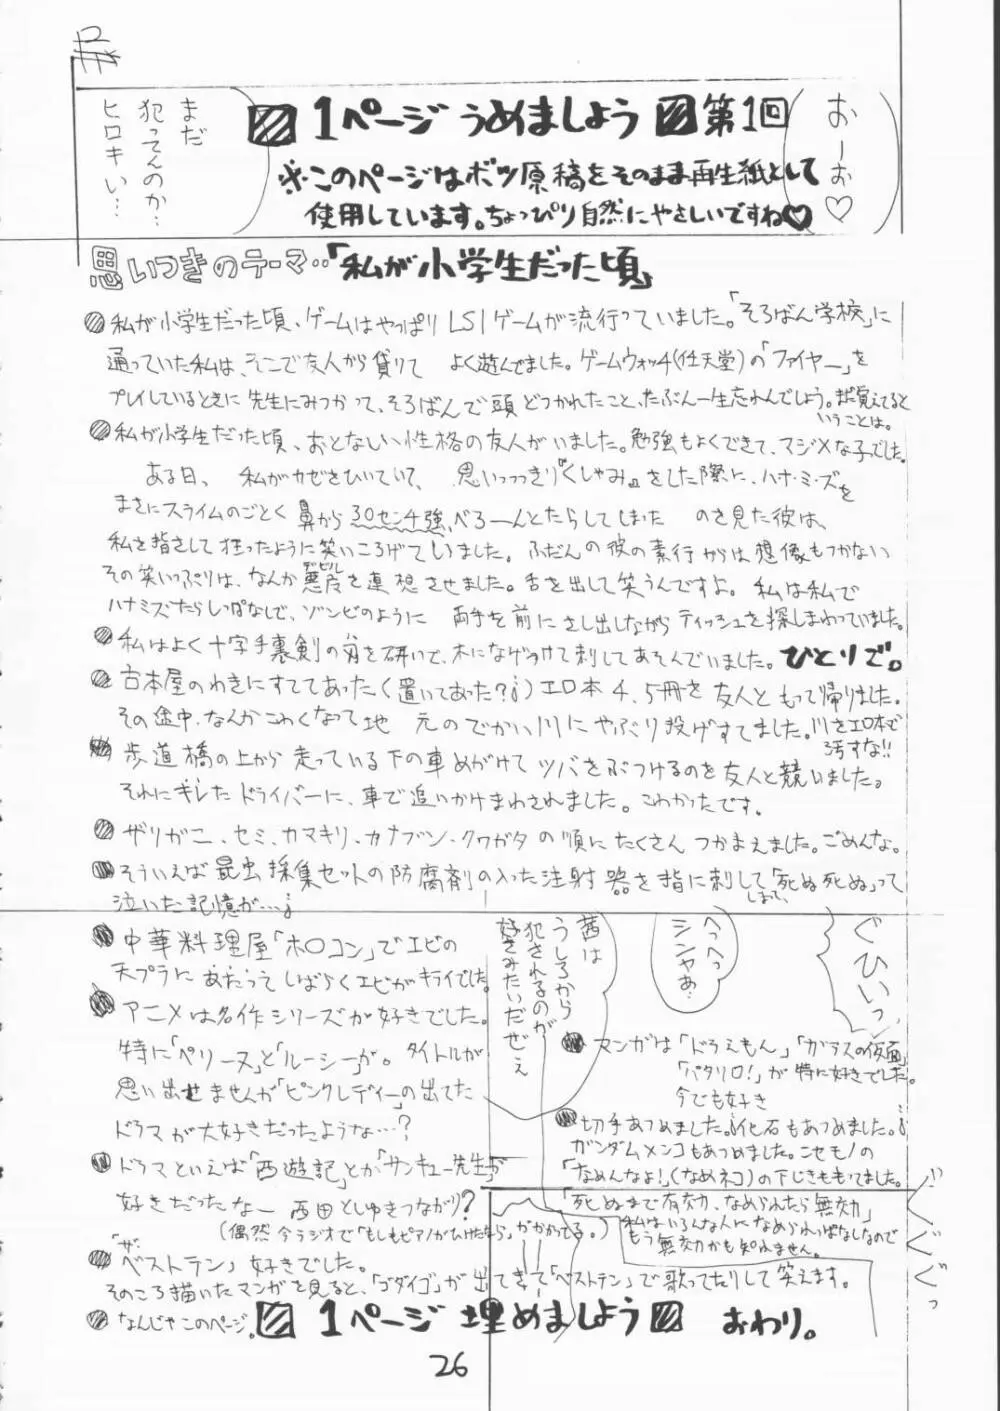 まだ
犯ってんのか…
ヒロキい…
おーお♡
1ページうめましょう 第1回
※このページはボツ原稿をそのまま再生紙として
使用しています。ちょっぴり自然にやさしいですね♡
思いつきのテーマ‥「私が小学生だった頃」
私が小学生だった頃、ゲームはやっぱりLSIゲームが流行っていました。「そろばん学校」に
通っていた私は、そこで友人から貸りて よく遊んでました。ゲームウォッチ(任天堂)の「ファイヤー」を
プレイしているときに先生にみつかって、そろばんで頭どつかれたこと、たぶん一生忘れんでしょう。まだ覚えてると
いうことは。
私が小学生だった頃、おとなしい性格の友人がいました。勉強もよくできて、マジメな子でした。
ある日、 私がカゼをひいていて、 思いっっきり『くしゃみ』をした際に、ハナ・ミ・ズを
まさにスライムのごとく鼻から30センチ強、べろーんとたらしてしまった のを見た彼は、
私を指さして狂ったように笑いころげていました。ふだんの彼の素行からは想像もつかない
その笑いっぷりは、なんか悪魔デビルを連想させました。舌を出して笑うんですよ。私は私で
ハナミズたらしっぱなしで、ゾンビのように 両手を前にさし出しながらティッシュを探しまわっていました。
私はよく十字手裏剣の刃を研いで、木になげつけて刺してあそんでいました。ひとりで。
古本屋のわきにすててあった(置いてあった?¡)エロ本4、5冊を友人ともって帰りました。
その途中、なんかこわくなって地 元のでかい川にやぶり投げすてました。川をエロ本で
汚すな!!
歩道橋の上から走っている下の車めがけてツバをぶつけるのを友人と競いました。
それにキレたドライバーに、車で追いかけまわされました。こわかったです。
ザリガニ、セミ、カマキリ、カナブン、クワガタの順にたくさんつかまえました。ごめんな。
そういえば昆虫採集セットの防腐剤の入った注射器を指に刺してしまって、「死ぬ死ぬ」って
泣いた記憶が…¡
中華料理屋「ホ〇コン」でエビの
天プラにあたってしばらくエビがキライでした。
アニメは名作シリーズが好きでした。
特に「ペリーヌ」と「ルーシー」が。タイトルが
思い出せませんが「ピンクレディー」の出てた
ドラマが大好きだったような…?
ドラマといえば「西遊記」とか「サンキュー先生」が
好きだったなー 西田としゆきつながり?
(偶然今ラジオで「もしもピアノがひけたなら」がかかってる。)
「ザ・
ベストテン」好きでした。
そのころ描いたマンガを見ると、「ゴダイゴ」が出てきて「ベストテン」で歌ってたりして笑えます。
なんじゃこのページ。
茜は
うしろから
犯されるのが
好きみたいだぜぇ
へっへっ
シンヤぁ…
ぐひいっ
マンガは「ドラえもん」「ガラスの仮面」
「パタリロ!」が特に好きでした。
今でも好き
切手あつめました。¡化石もあつめました。¡
ガンダムメンコもあつめました。ニセモノの
「なめんなよ!」(なめネコ)の下じきももってました。
「死ぬまで有効、なめられたら無効」
私はいろんな人になめられっぱなしなので
もう無効かも知れません。
ぐぐぐっ
1ページ埋めましょう おわり。
26